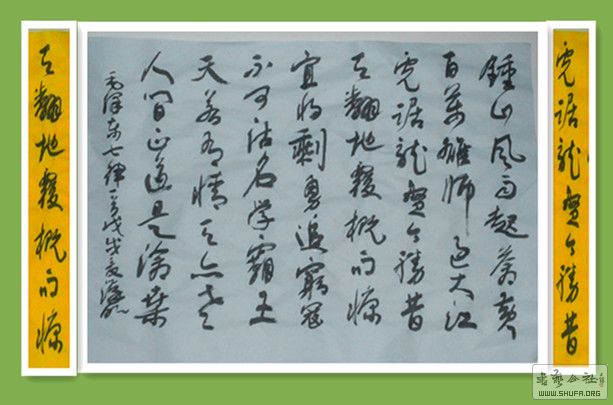 虎踞龍盤今勝昔
鍾山风雨起蒼黄
百萬雄师过大江
虎踞龍盤今勝昔
天翻地覆慨而慷
宜将剩勇追窮寇
不可沽名学霸王
天若有情天亦老
人间正道是滄桑
毛泽东七律一首
天翻地覆慨而慷
书艺公社
WWW.SHUFA.ORG